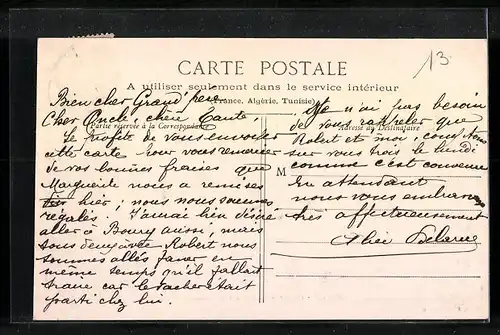 13
CARTE POSTALE
A utiliser seulement dans le service intérieur
(France, Algérie, Tunisie)
Partie réservée à la Correspondance
Adresse du Destinataire
M
Bien cher Grand père
Cher Oncle, chère Tante,
Je profite de vous envoyer
cette carte pour vous remercier
de vos bonnes fraises que
Marguerite nous a remises
hier; nous nous sommes
régalés. J'aurais bien désiré
aller à Boury aussi, mais
tous deux avec Robert nous
sommes allés faner en
même temps qu'il fallait
traire car le vacher était
parti chez lui.
Je n'ai pas besoin
de vous rappeler que
Robert et moi, comptons
sur vous trois le lundi
comme c'est convenu
En attendant
nous vous embrassons
très affectueusement
Delarue